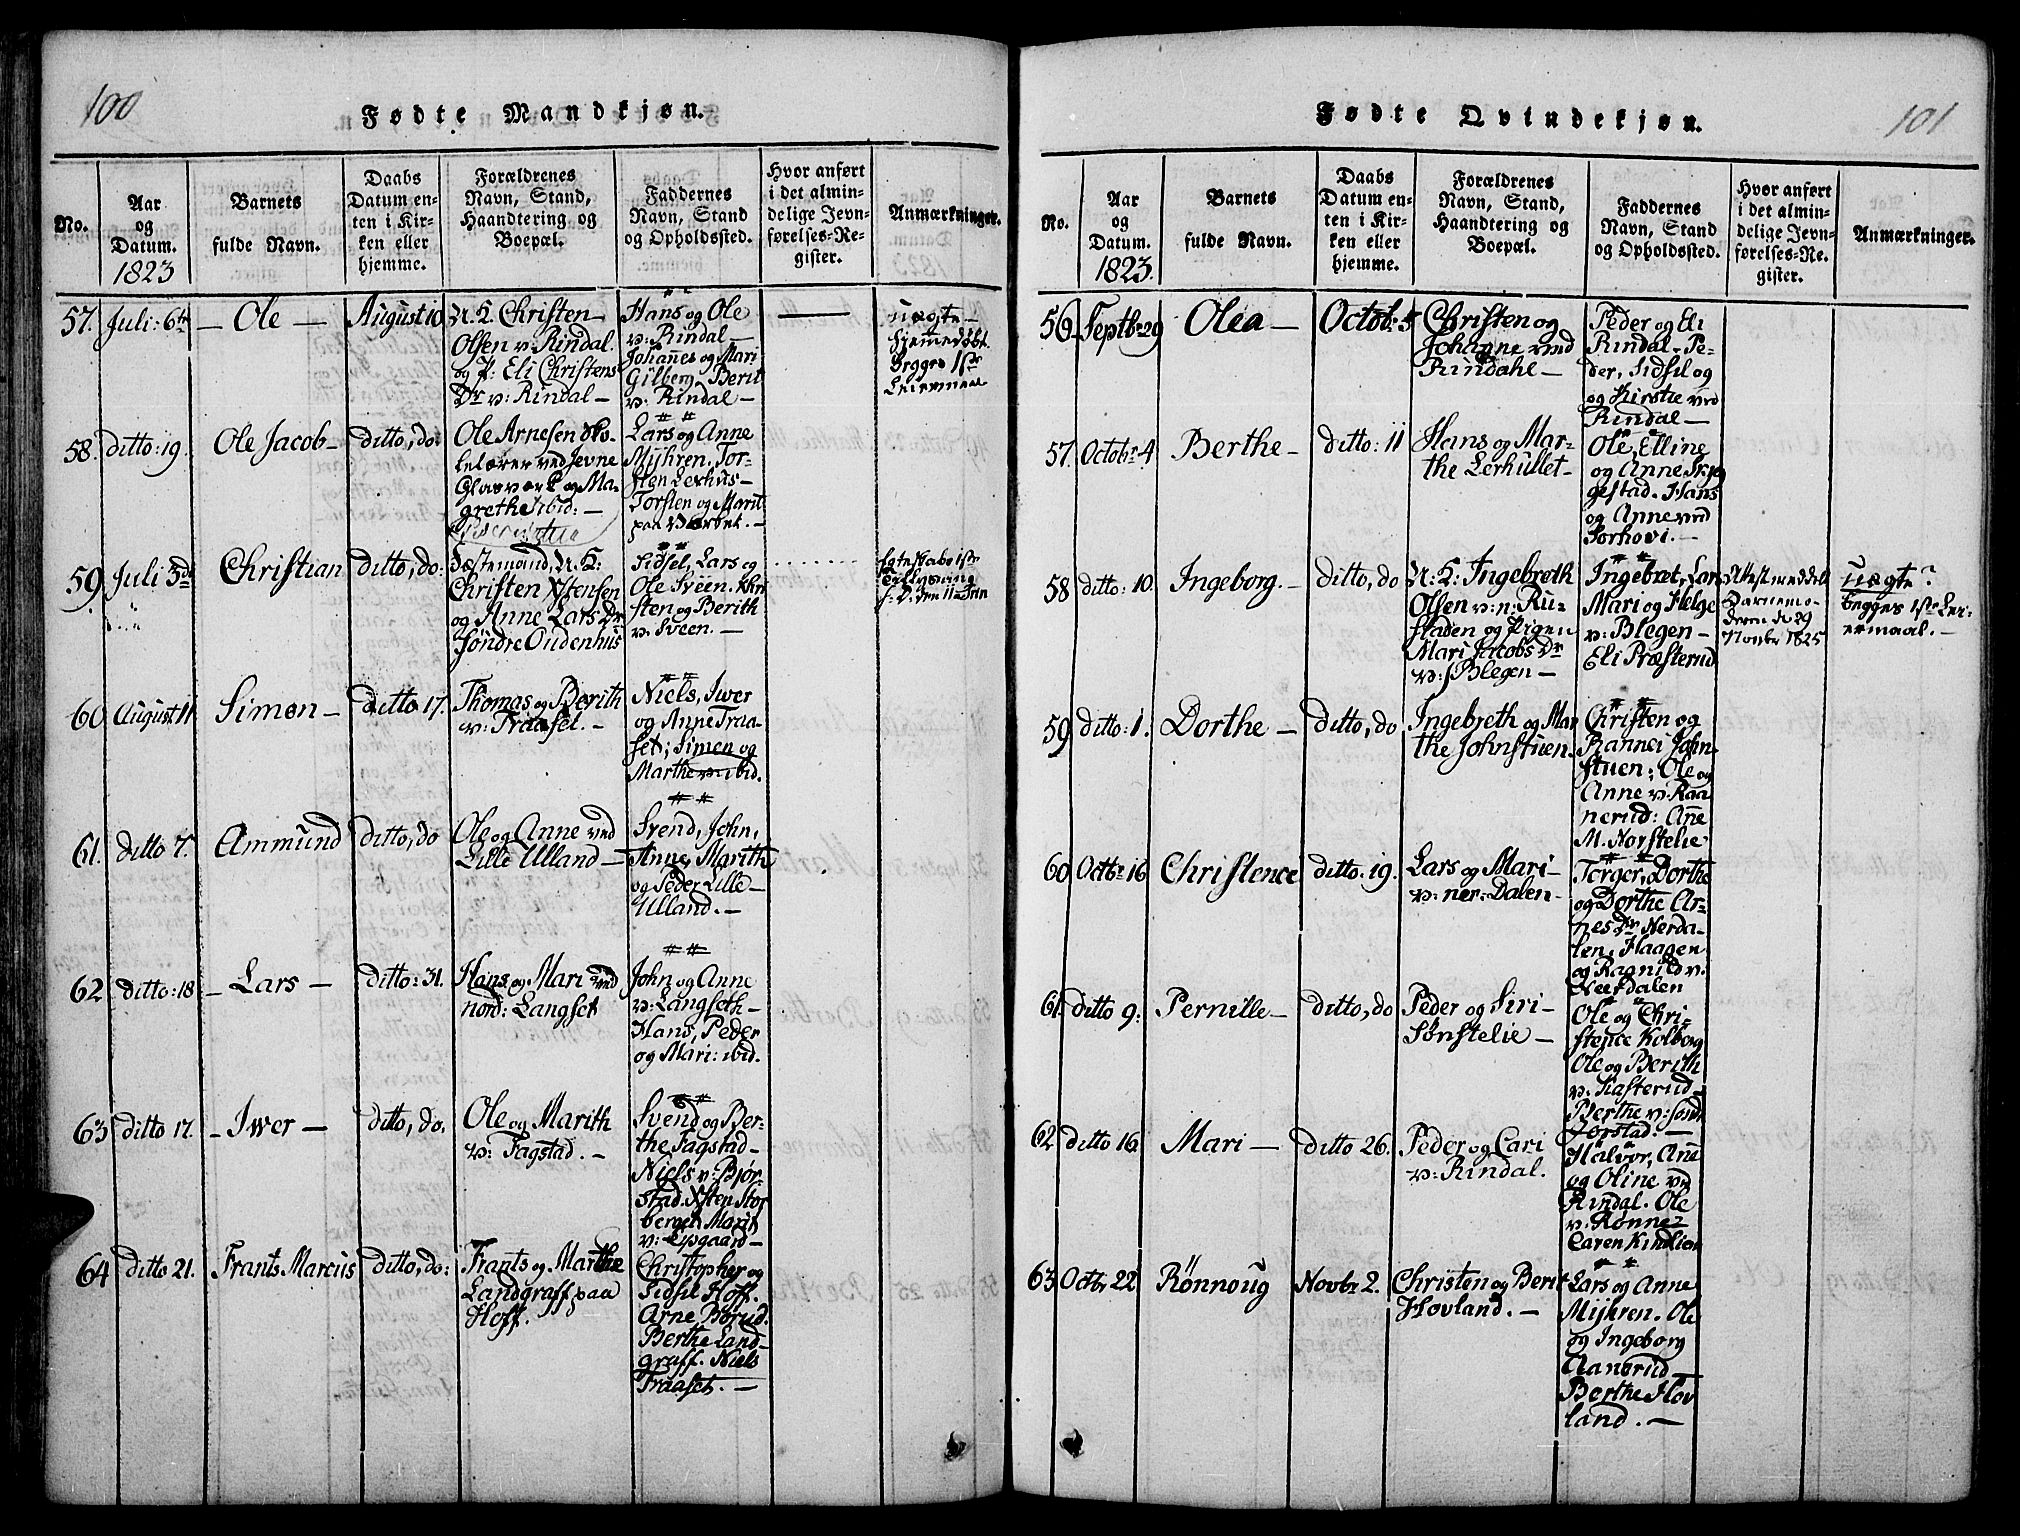 100
Fødte Mandkjøn.
No.
Aar
og
Datum.
1823
Barnets
fulde Navn.
Daabs
Datum en-
ten i Kir-
ken eller
hjemme.
Forældrenes
Navn, Stand,
Haandtering og
Boepæl.
Faddernes
Navn, Stand
og Opholdssted.
Hvor anført
i det almin-
delige Jevn-
førelses-Re-
gister.
Anmærkninger.
57. Juli: 6te
Ole
August 10
U. K. Christen
Olsen v: Rindal
og P: Eli Christens
Dr v: Rindal
Hans og Ole
v: Rindal
Johanes og Mari
Gilberg Berit
v: Rindal
uægte
hjemedøbt
begges 1ste
Leiermaal
58. ditto: 19
Ole Jacob
ditto, do:
Ole Arnesen Sko-
lelærer ved Jevne
Glasværk og Ma-
grethe ibid:
Lars og Anne
Mijhren, Tor-
sten Lerhus
Torsten og Marit
paa Værket.
59. Juli 3die
Christian
ditto, do:
Fæstemand, U. K:
Christen Istensen
og Anne Lars Dr
Søndre Oudenhus
Sidsel, Lars og
Ole Sveen. Chri
sten og Berith
v: Sveen.
60 August 11
Simon
ditto 17.
Thomas og Berith
v: Traaset.
Niels, Iwer
og Anne Traa-
set; Simen og
Marthe v: ibid.
61. ditto 7.
Ammund
ditto, do
Ole og Anne ved
Lille Ulland
Svend, John,
Anne, Marith
og Peder Lille
Ulland.
62 ditto: 18
Lars
ditto: 31.
Hans og Mari ved
nord: Langset
John og Anne
v: Langseth
Hans, Peder
og Mari: ibid.
63 ditto 17.
Iwer
ditto, do.
Ole og Marith
v: Fagstad.
Svend og Ber-
the Fagstad
Niels v: Bjør-
stad. Isten Stor
berget Marit
v: Opgaard
64 ditto 21.
Frants Marcus
ditto, do:
Frants og Marthe
Landgraff paa
Hoff.
Christopher og
Sidsil Hoff.
Arne Børud.
Berthe Land-
graff. Niels
Traaset.
101
Fødte Qvindekjøn.
No.
Aar
og
Datum.
1823.
Barnets
fulde Navn.
Daabs
Datum en-
ten i Kir-
ken eller
hjemme.
Forældrenes
Navn, Stand,
Haandtering og
Boepæl.
Faddernes
Navn, Stand
og Opholdssted.
Hvor anført
i det almin-
delige Jevn-
førelses-Re-
gister.
Anmærkninger.
56 Septbr 29
Olea
Octob: 5
Christen og
Johanne ved
Rindahl
Peder og Eli
Rindal. Pe-
der, Sidsil og
og Kirstie ved
Rindal
57. Octobr 4
Berthe
ditto: 11
Hans og Mar-
the Lerhullet
Ole, Elline
og Anne
gestad. Hans
og Anne ved
Forhovi.
58 ditto: 10.
Ingeborg.
ditto, do
U. K: Ingebreth
Olsen v: n: Ru-
staden og Pigen
Mari Jacobs Dr
v: Blegen
Ingebret, Lars
Mari og Helge
v: Blegen
Eli Præsterud
Attest meddelt
Barnemo-
deren d. 29
Novbr 1825
uægte?
begges 1ste Lei-
ermaal.
59 ditto: 1.
Dorthe
ditto, do
Ingebreth og Mar
the Johnstuen.
Christen og
Rannei John-
stuen; Ole og
Anne v: Raa
nerud: Ane
M. Norstelie
60 Octbr 16
Christence
ditto: 19.
Lars og Mari
v: ner: Dalen
Torger, Dorthe
og Dorthe Ar-
nes Dr Nerda-
len, Haagen
og Ragnild v.
Neerdalen
61. ditto 9:
Pernille
ditto, do
Peder og Siri
Sønstelie
Ole og Chri-
stence Kolberg
Ole og Berith
v: Kasterud
Berthe v: Sond
Jorstad.
62. ditto 16.
Mari
ditto 26.
Peder og Cari
v: Rindal.
Halvor, Ane
og Oline ved
Rindal. Ole
v: Rønne
Caren Kindlien
63 Octbr 22
Rönnoug
Novbr 2.
Christen og Berit
Hovland.
Lars og Anne
Mijhren. Ole
og Ingeborg
Aanerud
Berthe Hov
land.